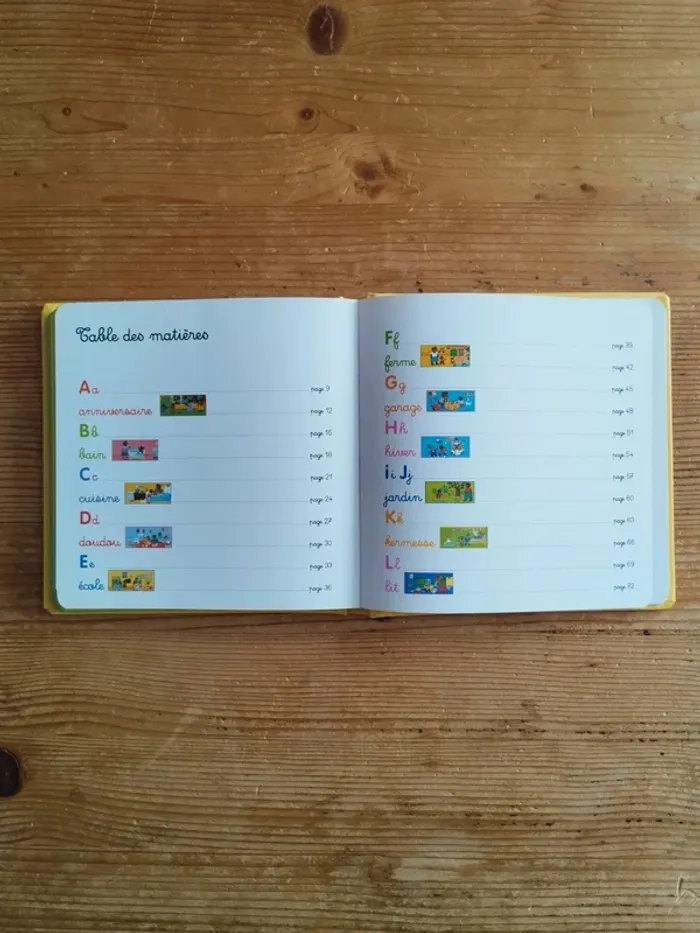 Table des matières
Aa page 9
anniversaire page 12
Bb page 15
bain page 18
Cc page 21
cuisine page 24
Dd page 27
doudou page 30
Ee page 33
école page 36
Ff page 39
ferme page 42
Gg page 45
garage page 48
Hh page 51
hiver page 54
Ii Jj page 57
jardin page 60
Kk page 63
kermesse page 66
Ll page 69
lit page 72